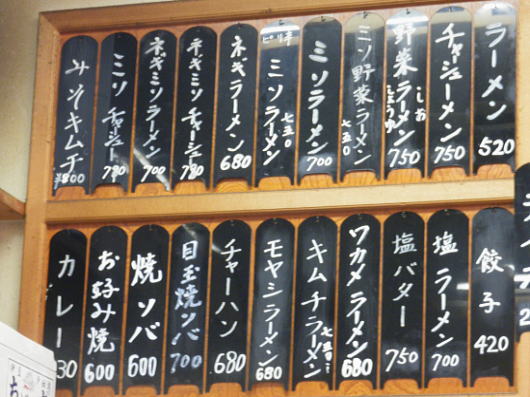 ラーメン 520
チャーシューメン 750
野菜ラーメン しお しょうゆ 750
ミソ野菜ラーメン 七五〇
ミソラーメン 700
ピリ辛 ミソラーメン 七五〇
ネギラーメン 680
ネギミソチャーシュー 780
ネギミソラーメン 780
ミソチャーシュー 780
みそキムチ ¥800
餃子 420
塩ラーメン 700
塩バター 750
ワカメラーメン 680
キムチラーメン 七五〇
モヤシラーメン 680
チャーハン 680
目玉焼ソバ 700
焼ソバ 600
お好み焼 600
カレー